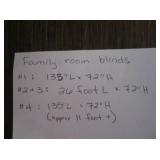 Family room blinds
#1: 135"L x 72"H
#2+3: 26 foot L x 72"H
#4: 135"L x 72"H
(approx 11 foot +)